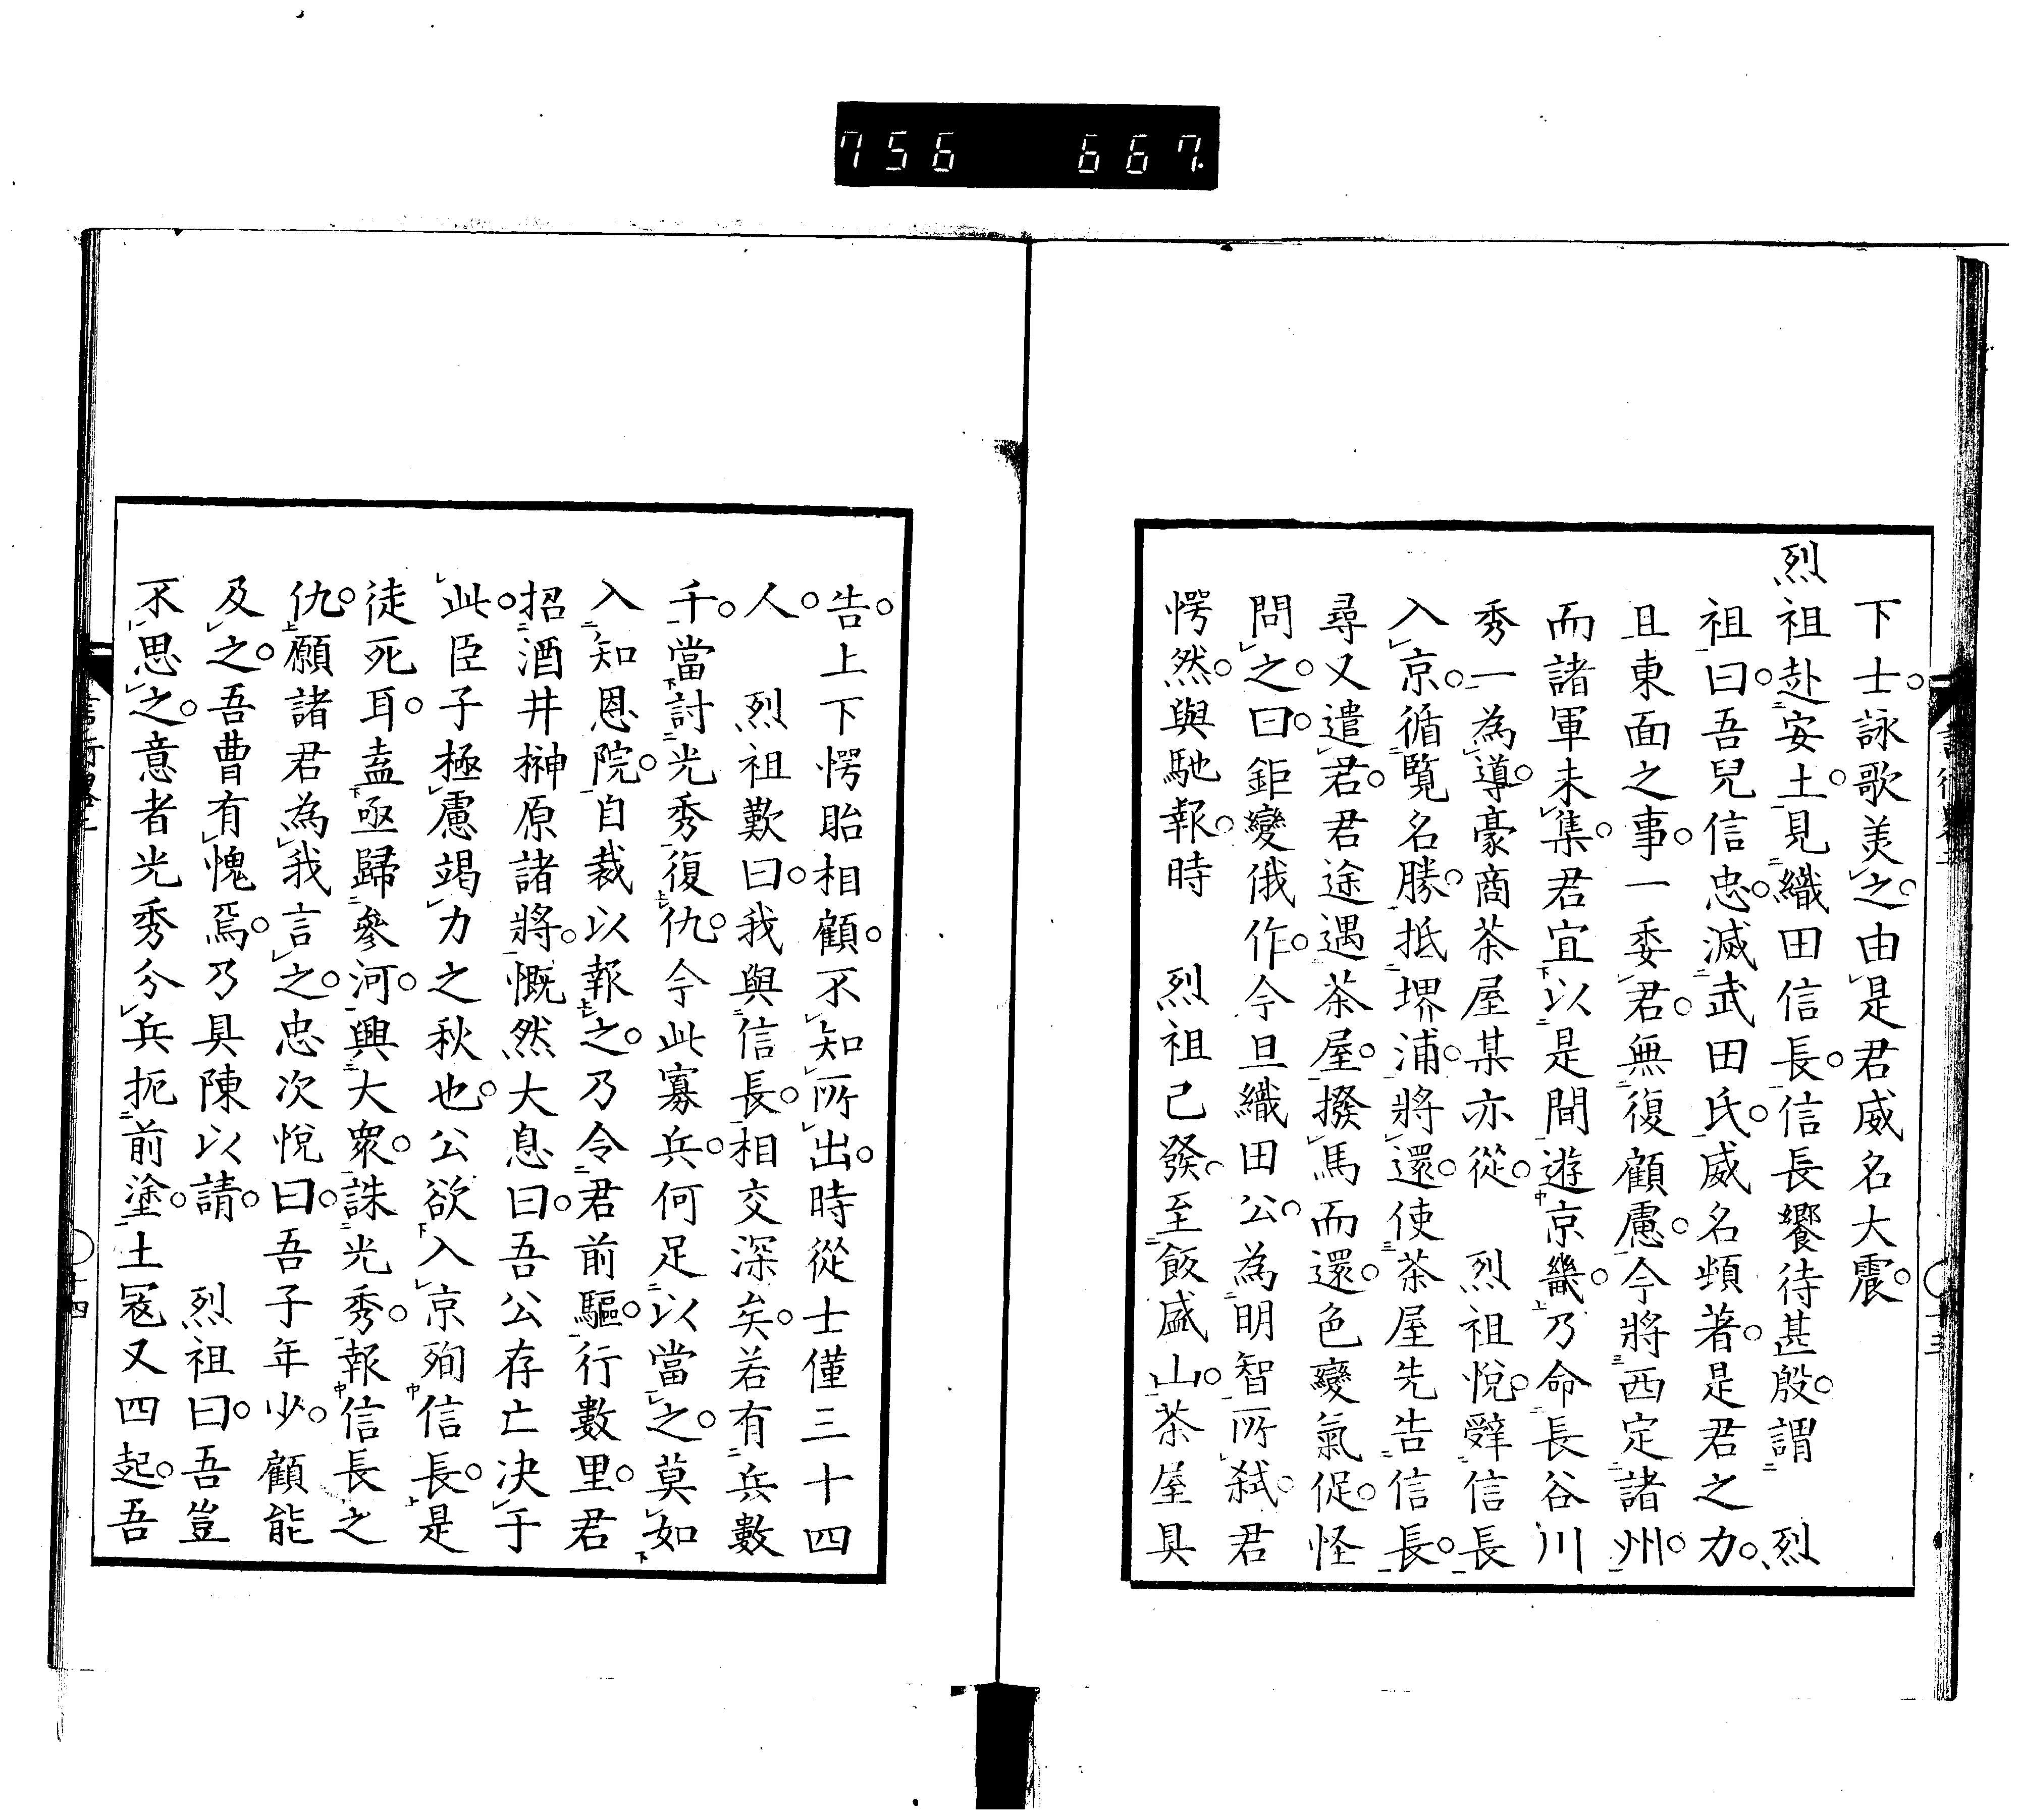 756 667.
下士詠歌美之由是君威名大震
烈祖赴安土見織田信長信長饗待甚殷謂 烈
祖曰吾兒信忠滅武田氏威名頗著是君之力
且東面之事一委君無復顧慮今將西定諸州
而諸軍未集君宜以是間遊京畿乃命長谷川
秀一為導豪商茶屋某亦從 烈祖悅辭信長
入京循覽名勝抵堺浦將還使茶屋先告信長
尋又遣君君途遇茶屋撥馬而還色變氣促怪
問之曰鉅變俄作今旦織田公為明智所弑君
愕然與馳報時 烈祖已發至飯盛山茶屋具
告上下愕眙相顧不知所出時從士僅三十四
人 烈祖歎曰我與信長相交深矣若有兵數
千當討光秀復仇今此寡兵何足以當之莫如
入知恩院自裁以報之乃令君前驅行數里君
招酒井榊原諸將慨然大息曰吾公存亡決于
此臣子極慮竭力之秋也公欲入京殉信長是
徒死耳盍亟歸參河興大眾誅光秀報信長之
仇願諸君為我言之忠次悅曰吾子年少顧能
及之吾曹有愧焉乃具陳以請 烈祖曰吾豈
不思之意者光秀分兵扼前塗土寇又四起吾